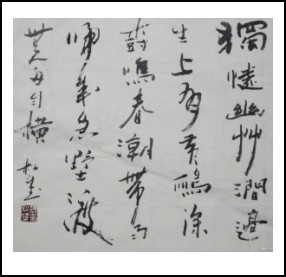 獨憐幽艸澗邊
生上有黃鸝深
樹鳴春潮帶雨
晚來急墅渡
無人舟自橫